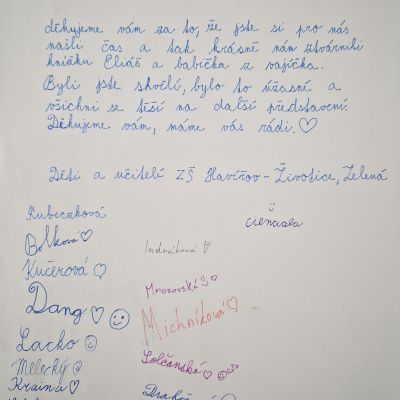 děkujeme vám za to, že jste si pro nás
našli čas a tak krásně nám ztvárnili
knížku Eliáš a babička z vajíčka.
Byli jste skvělí, bylo to úžasné a
všichni se těší na další představení.
Děkujeme vám, máme vás rádi.
Děti a učitelé ZŠ Havířov-Životice, Zelená
Kubeczková
Cienciala
Bolková
Indráková
Kučerová
Mrozovská
Dang
Michníková
Lacko
Solčanská
Melecký
Kraina